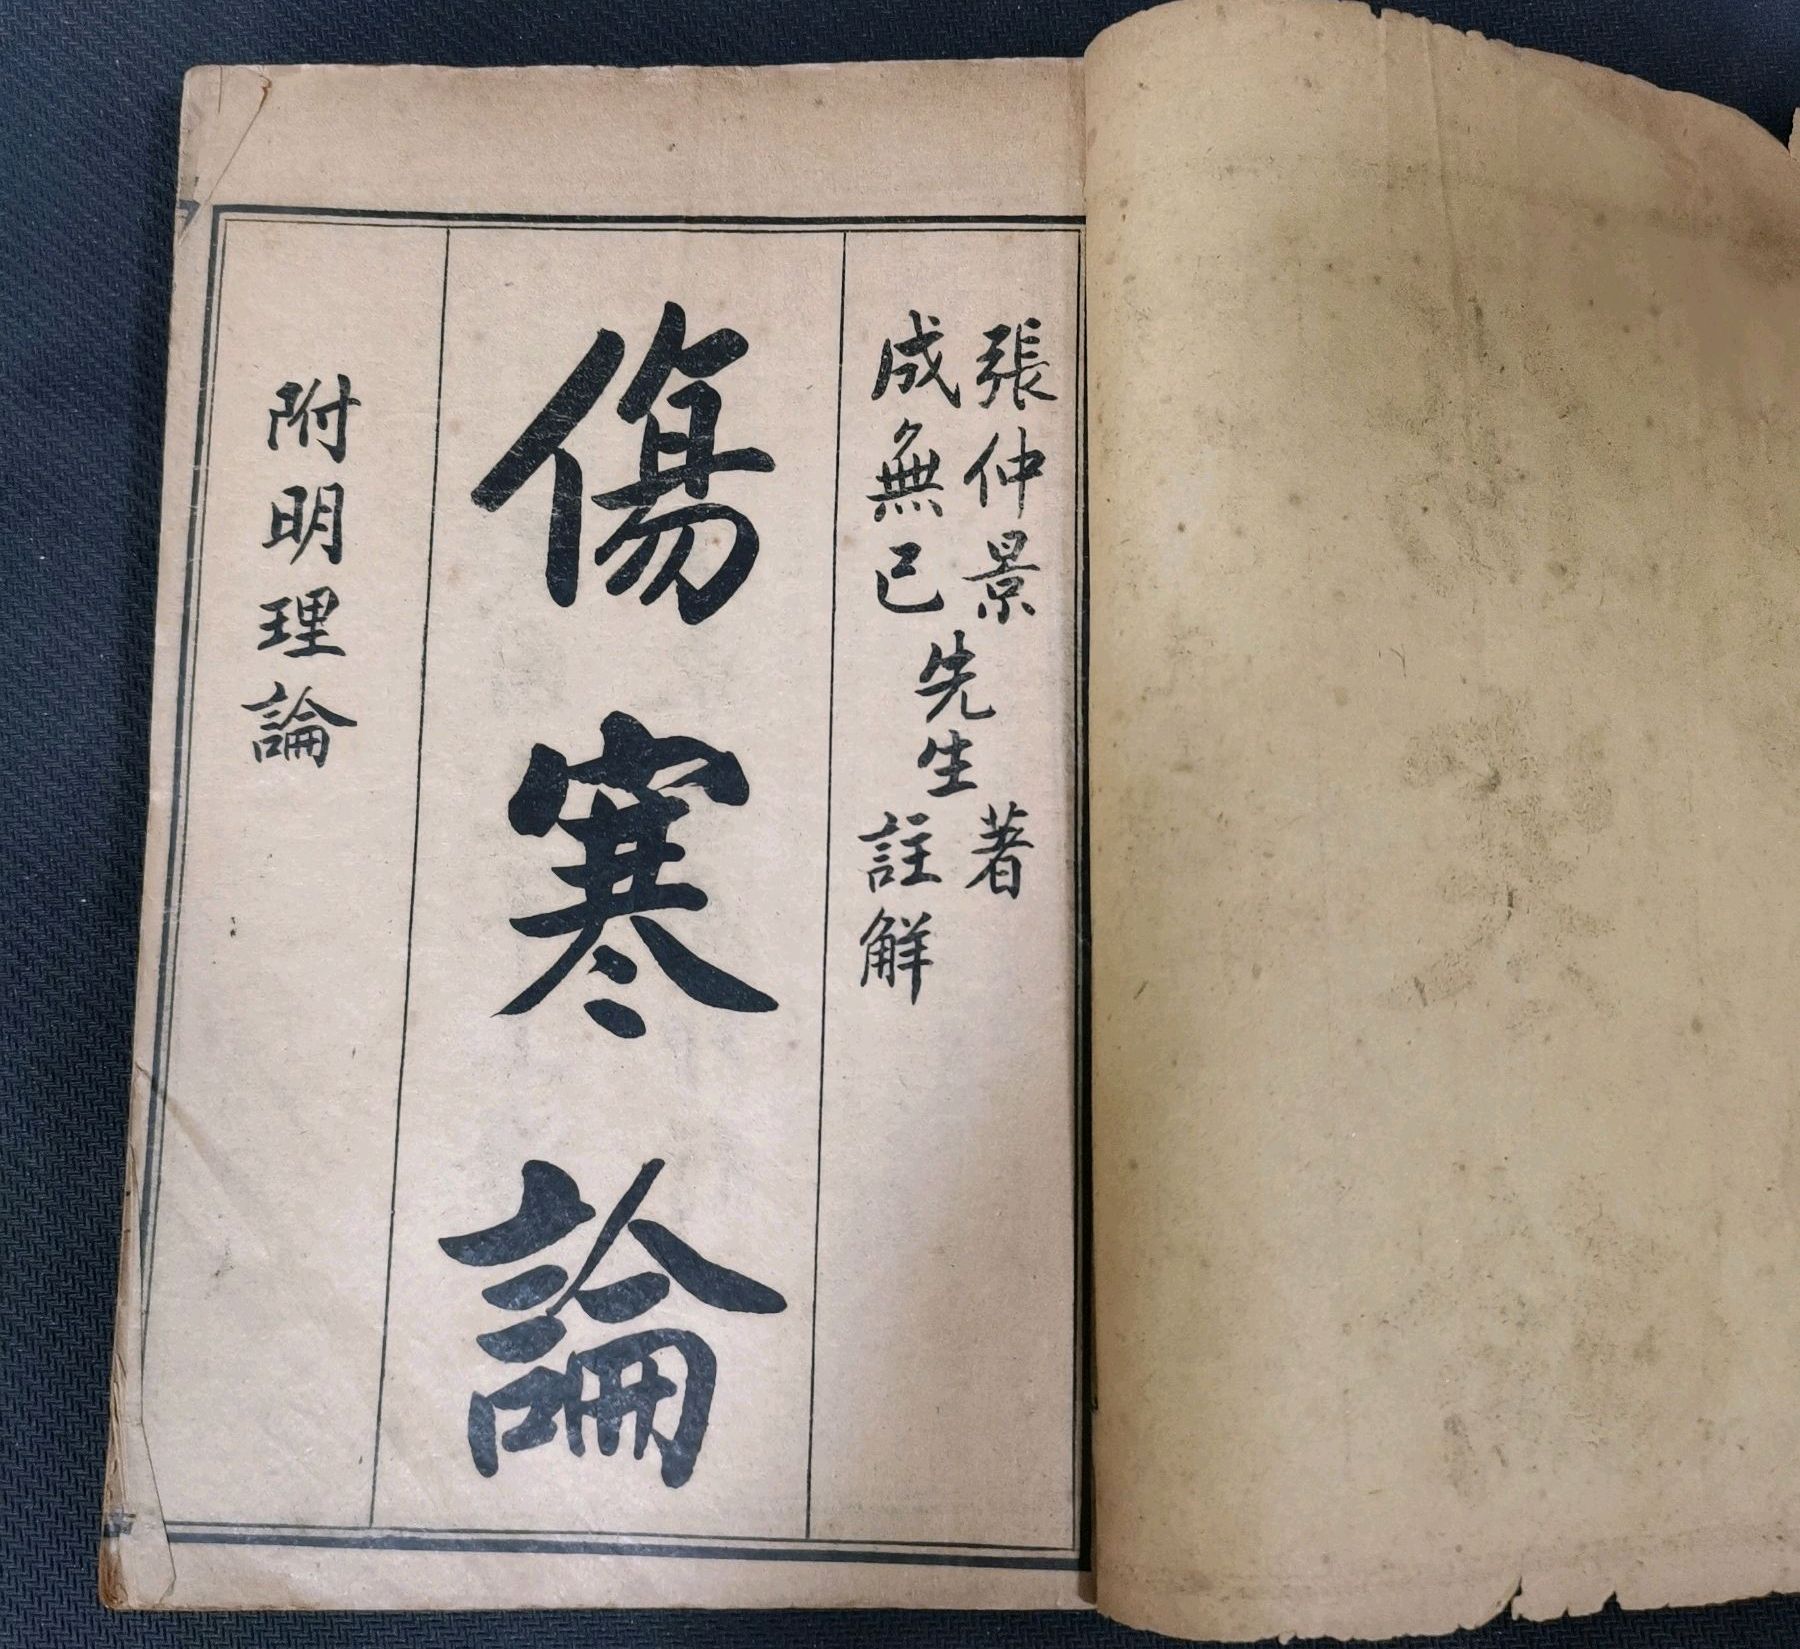 張仲景先生著
成無己先生註解
傷寒論
附明理論